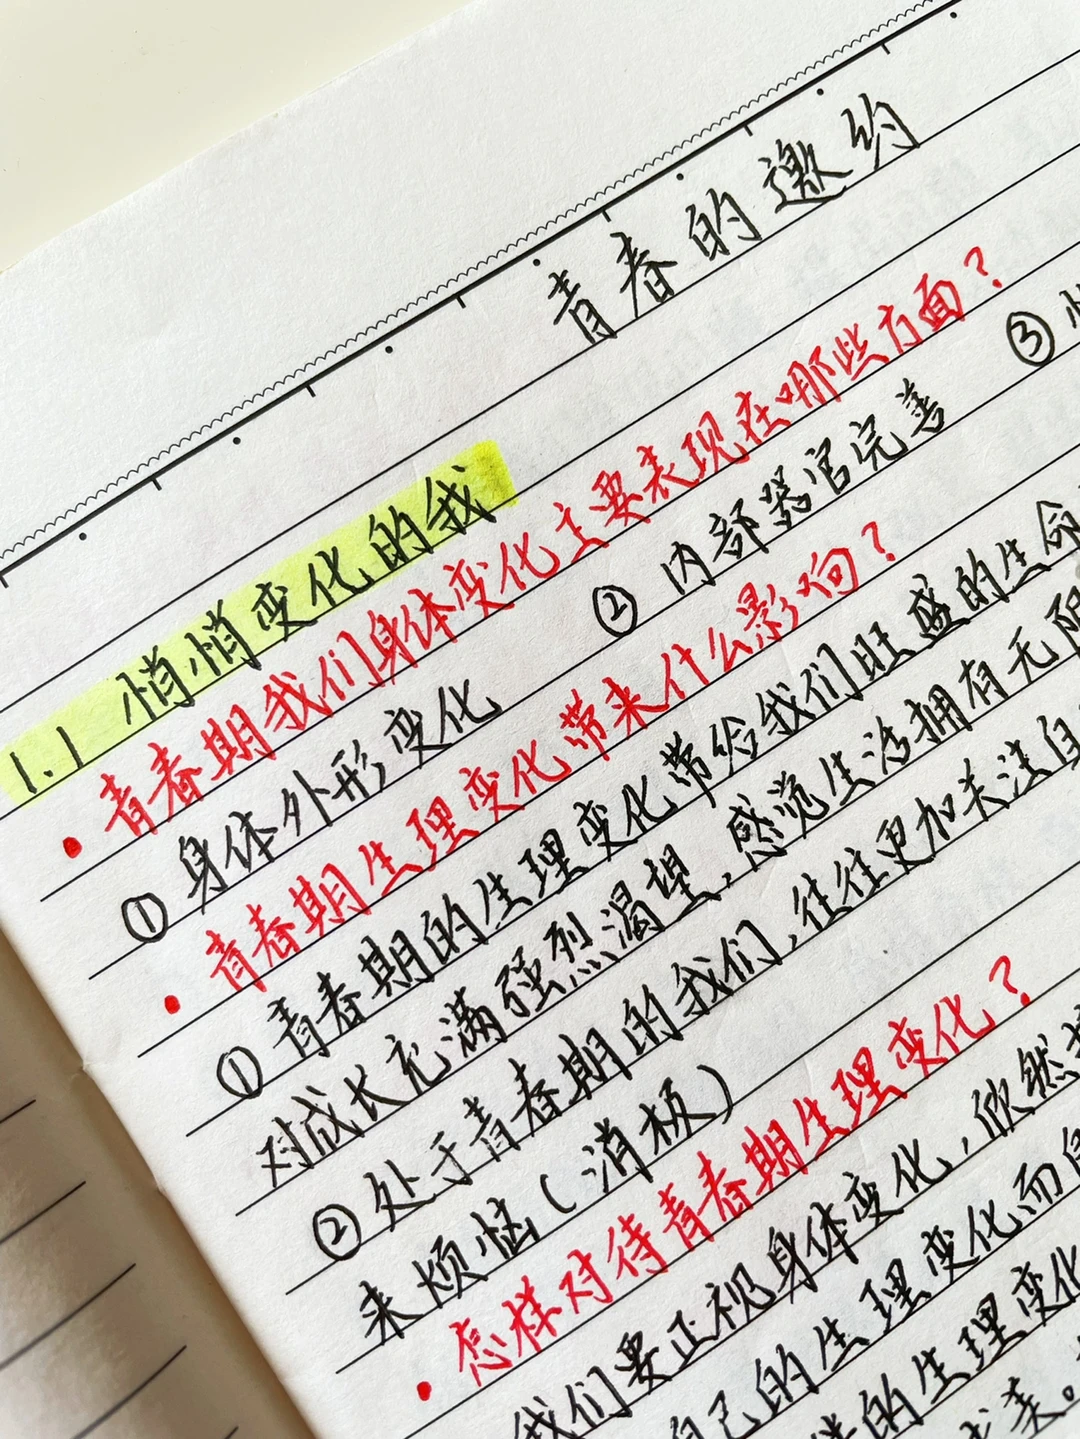 青春的邀约
1.1 悄悄变化的我
• 青春期我们身体变化主要表现在哪些方面？
① 身体外形变化 ② 内部器官完善 ③
• 青春期生理变化带来什么影响？
① 青春期的生理变化带给我们旺盛的生命
对成长充满强烈渴望，感觉生活拥有无限
② 处于青春期的我们，往往更加关注自
来烦恼（消极）
• 怎样对待青春期生理变化？
我们要正视身体变化，欣然
自己的生理变化而
的生理变化